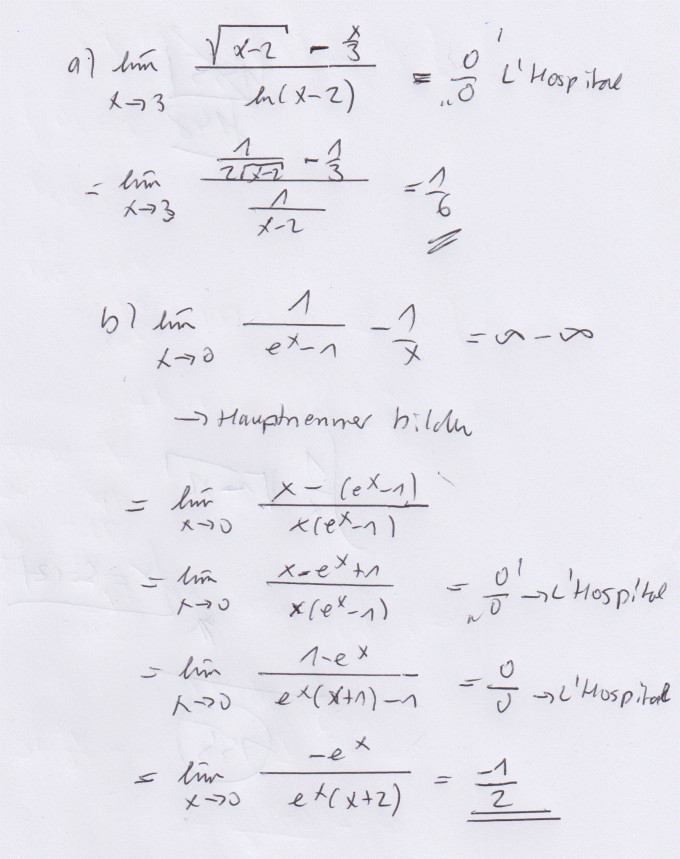 a) lim x→3 (√(x-2) - x/3) / ln(x-2) = "0/0" L'Hospital
= lim x→3 (1/(2√(x-2)) - 1/3) / (1/(x-2)) = 1/6
b) lim x→0 1/(e^x-1) - 1/x = ∞ - ∞
→ Hauptnenner bilden
= lim x→0 (x - (e^x-1)) / (x(e^x-1))
= lim x→0 (x-e^x+1) / (x(e^x-1)) = "0/0" → L'Hospital
= lim x→0 (1-e^x) / (e^x(x+1)-1) = 0/0 → L'Hospital
= lim x→0 (-e^x) / (e^x(x+2)) = -1/2